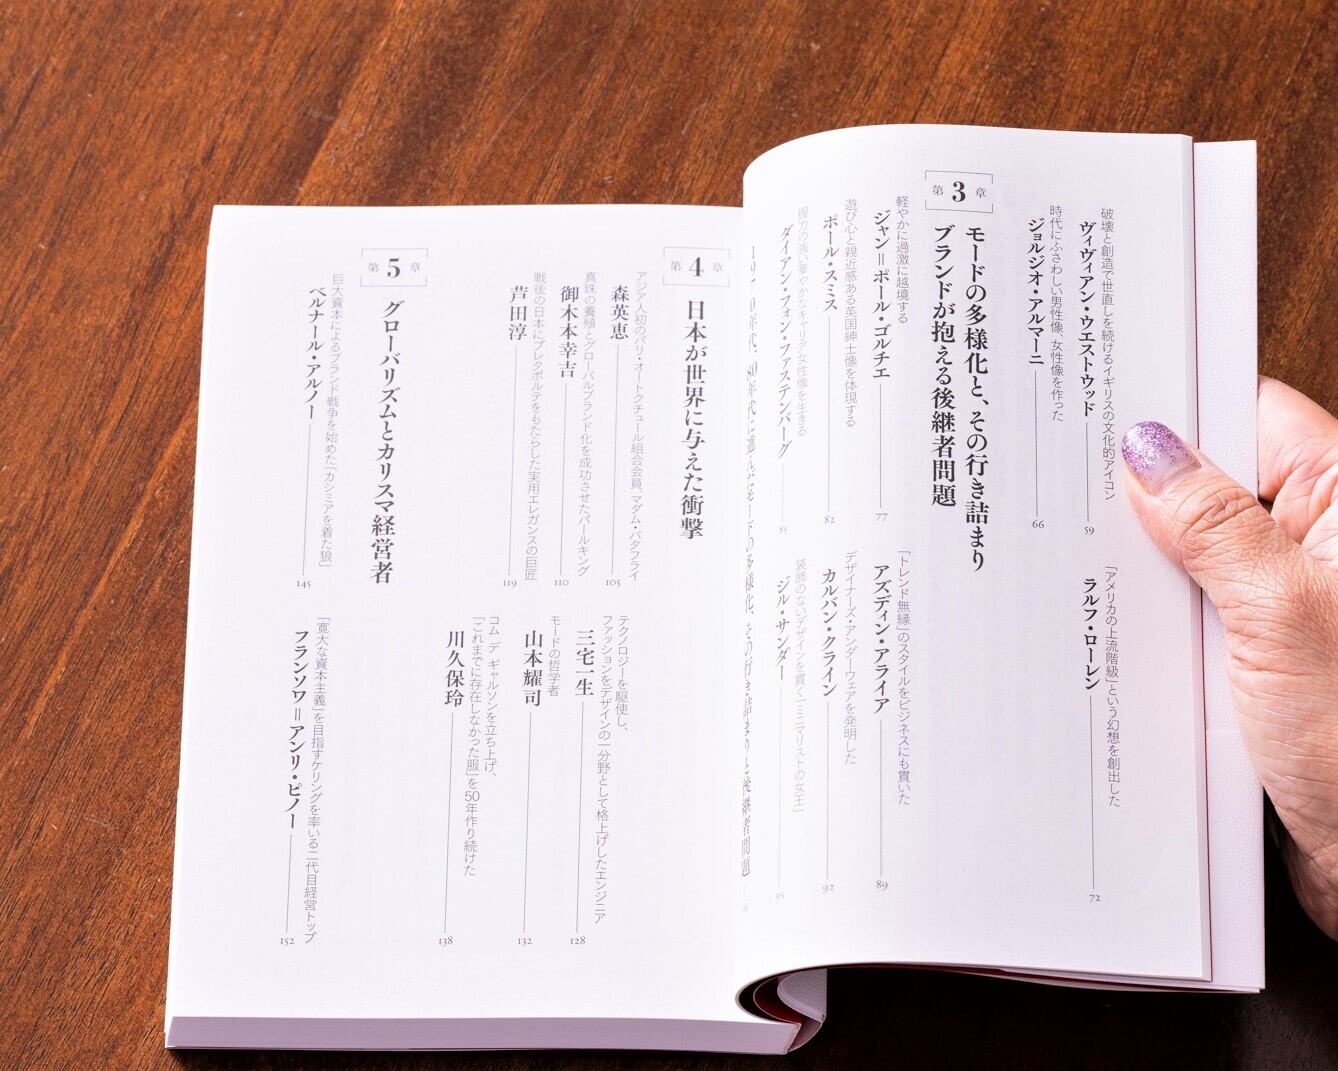 破壊と創造で世直しを続けるイギリスの文化的アイコン
ヴィヴィアン・ウエストウッド
59
時代にふさわしい男性像、女性像を作った
ジョルジオ・アルマーニ
66
「アメリカの上流階級」という幻想を創出した
ラルフ・ローレン
72
第3章
モードの多様化と、その行き詰まり
ブランドが抱える後継者問題
軽やかに過激に越境する
ジャン=ポール・ゴルチエ
77
遊び心と親近感ある英国紳士像を体現する
ポール・スミス
82
握力の強い華やかなキャリア女性像を生きる
ダイアン・フォン・ファステンバーグ
85
「トレンド無縁」のスタイルをビジネスにも貫いた
アズディン・アライア
89
デザイナーズ・アンダーウェアを発明した
カルバン・クライン
92
装飾のないデザインを貫く「ミニマリストの女王」
ジル・サンダー
95
第4章
日本が世界に与えた衝撃
アジア人初のパリ・オートクチュール組合会員、マダム・バタフライ
森英恵
105
真珠の養殖とグローバルブランド化を成功させたパールキング
御木本幸吉
110
戦後の日本にプレタポルテをもたらした実用エレガンスの巨匠
芦田淳
119
テクノロジーを駆使し、
ファッションをデザインの一分野として格上げしたエンジニア
三宅一生
128
モードの哲学者
山本耀司
132
コム デ ギャルソンを立ち上げ、
「これまでに存在しなかった服」を50年作り続けた
川久保玲
138
第5章
グローバリズムとカリスマ経営者
巨大資本によるブランド戦争を始めた「カシミアを着た狼」
ベルナール・アルノー
145
「寛大な資本主義」を目指すケリングを率いる二代目経営トップ
フランソワ=アンリ・ピノー
152